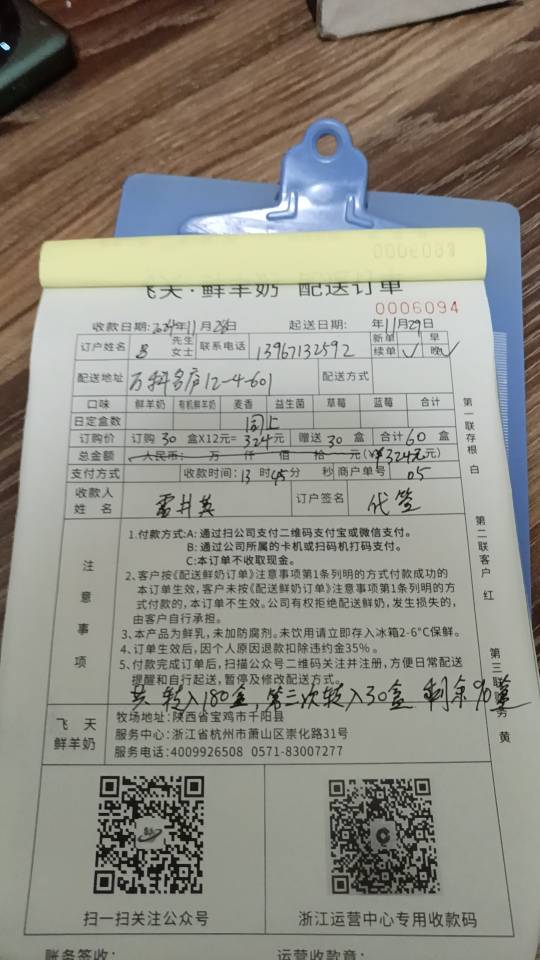 飞天·鲜羊奶 配送订单
0006094
收款日期:2024年11月28日 起送日期: 年11月29日
订户姓名 先生 女士 联系电话 13967132592 新单 早
续单 ✓ 晚 ✓
配送地址 12-4-601 配送方式
口味 鲜羊奶 有机鲜羊奶 麦香 益生菌 草莓 蓝莓 合计
日定盒数 同上
订购价 订购 30 盒X12元= 324元 赠送 30 盒 合计 60 盒
总金额 人民币: 万 仟 佰 拾 元(¥324元 元)
支付方式 收款时间: 13 时 45分 秒 商户单号 05
收款人姓名 雷井英 订户签名 代签
注意事项
1.付款方式:A:通过扫公司支付二维码支付宝或微信支付。
B:通过公司所属的卡机或扫码机打码支付。
C:本订单不收取现金。
2、客户按《配送鲜奶订单》注意事项第1条列明的方式付款成功的
本订单生效,客户未按《配送鲜奶订单》注意事项第1条列明的方
式付款的,本订单不生效。公司有权拒绝配送鲜奶,发生损失的,
由客户自行承担。
3、本产品为鲜乳,未加防腐剂。未饮用请立即存入冰箱2-6°C保鲜。
4、订单生效后,因个人原因退款扣除违约金35%。
5、付款完成订单后,扫描公众号二维码关注并注册,方便日常配送
提醒和自行起送,暂停及修改配送方式。
共转入180盒,第二次转入30盒 剩余
飞天鲜羊奶
牧场地址:陕西省宝鸡市千阳县
服务中心:浙江省杭州市萧山区崇化路31号
服务电话:4009926508 0571-83007277
扫一扫关注公众号 浙江运营中心专用收款码
账务签收: 运营收款章:
第一联存根 白
第二联客户 红
第三联 务 黄